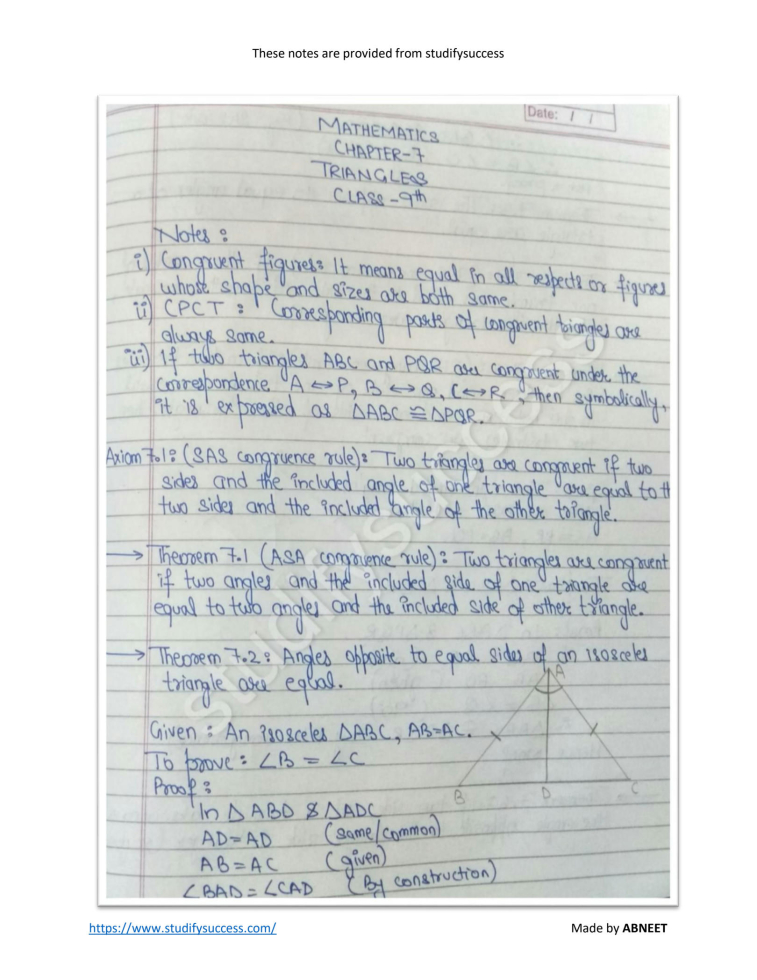 These notes are provided from studifysuccess
Date: / /
MATHEMATICS
CHAPTER-7
TRIANGLES
CLASS-9th
Notes :
i) Congruent figures: It means equal in all respects or figures
whose shape and sizes are both same.
ii) CPCT : Corresponding parts of congruent triangles are
always same.
iii) If two triangles ABC and PQR are congruent under the
correspondence A ↔ P, B ↔ Q, C ↔ R, then symbolically,
it is expressed as ΔABC ≅ ΔPQR.
Axiom 7.1: (SAS congruence rule): Two triangles are congruent if two
sides and the included angle of one triangle are equal to th
two sides and the included angle of the other triangle.
→ Theorem 7.1 (ASA congruence rule): Two triangles are congruent
if two angles and the included side of one triangle are
equal to two angles and the included side of other triangle.
→ Theorem 7.2: Angles opposite to equal sides of an isosceles
triangle are equal.
A
Given : An isosceles ΔABC, AB=AC.
To prove : ∠B = ∠C
Proof :
B D C
In Δ ABD & ΔADC
AD=AD (same/common)
AB=AC (given)
∠BAD=∠CAD (By construction)
studifysuccess
https://www.studifysuccess.com/ Made by ABNEET